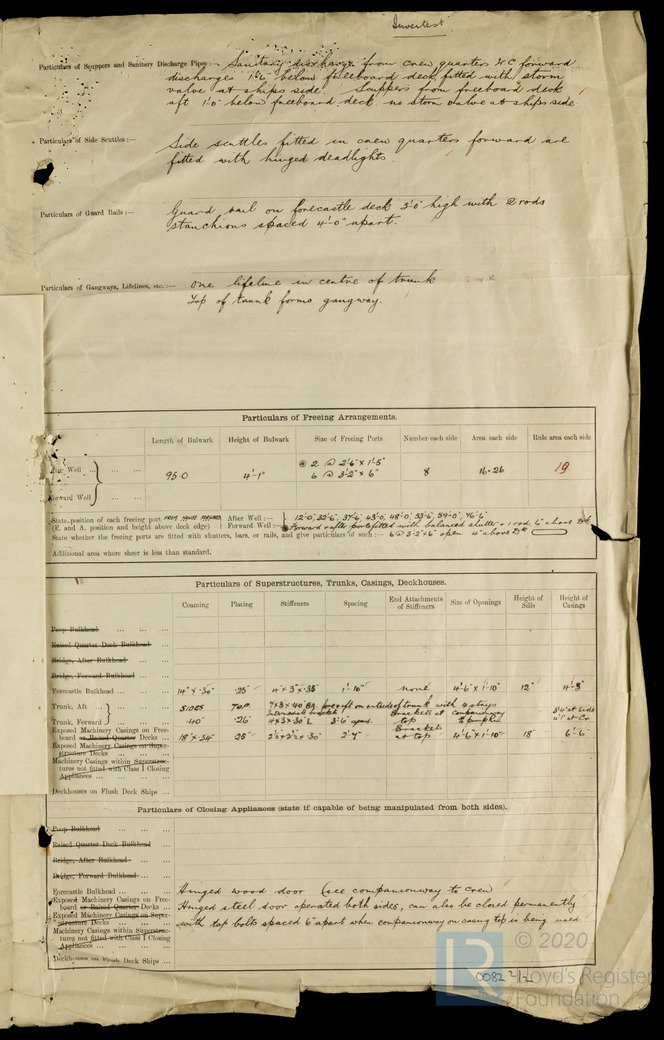 Invertest
Particulars of Scuppers and Sanitary Discharge Pipes:— Sanitary discharge from crew quarters W.C. forward
discharges 1'-6" below freeboard deck fitted with storm
valve at ships side. Scuppers from freeboard deck
aft 1'-0" below freeboard deck no storm valve at ships side
Particulars of Side Scuttles:— Side scuttles fitted in crew quarters forward are
fitted with hinged deadlights.
Particulars of Guard Rails:— Guard rail on forecastle deck 3'-0" high with 2 rods
stanchions spaced 4'-0" apart.
Particulars of Gangways, Lifelines, etc.:— One lifeline in centre of trunk
Top of trunk forms gangway.
Particulars of Freeing Arrangements.
Length of Bulwark Height of Bulwark Size of Freeing Ports Number each side Area each side Rule area each side
After Well ... ... 95.0 4'-1" 2 @ 2'-6" x 1'-5" 8 16.26 19
6 @ 3'-2" x 6"
Forward Well
State position of each freeing port After Well:— 12'-0,
(F. and A. position and height above deck edge) Forward Well:— Forward & after ports fitted with balanced shutter & 1 rod, 6" above Dk
State whether the freeing ports are fitted with shutters, bars, or rails, and give particulars of such:— 6 @ 3'-2" x 6" open 4" above Dk
Additional area where sheer is less than standard.
Particulars of Superstructures, Trunks, Casings, Deckhouses.
Coaming Plating Stiffeners Spacing End Attachments of Stiffeners Size of Openings Height of Sills Height of Casings
Poop Bulkhead ... ... ...
Raised Quarter Deck Bulkhead ...
Bridge, After Bulkhead ... ...
Bridge, Forward Bulkhead ... ...
Forecastle Bulkhead ... ... 14" x .30" .25" 4" x 3" x .35" 1'-10" none 4'-6" x 1'-10" 12" 4'-3"
Trunk, Aft ... ... SIDES TOP fore & aft on outside of trunk with 4 stays
Trunk, Forward ... ... .40" .26" 4 x 3 x 30 L 3'-6" apart. top
Exposed Machinery Casings on Freeboard or Raised Quarter Decks ... 18" x .34" .25" 2½ x 2½ x .30" 2'-4" Brackets at top 4'-6" x 1'-10" 18" 6'-6"
Exposed Machinery Casings on Superstructure Decks ... ...
Machinery Casings within Superstructures not fitted with Class I Closing
Appliances ... ... ...
Deckhouses on Flush Deck Ships ...
Particulars of Closing Appliances (state if capable of being manipulated from both sides).
Poop Bulkhead ... ... ...
Raised Quarter Deck Bulkhead ...
Bridge, After Bulkhead ... ...
Bridge, Forward Bulkhead ... ...
Forecastle Bulkhead ... ... Hinged wood door (see companionway to crew
Exposed Machinery Casings on Freeboard or Raised Quarter Decks ... Hinged steel door operated both sides, can also be closed permanently
Exposed Machinery Casings on Superstructure Decks ... ... with tap bolts spaced 6" apart when companionway on casing top is being used
Machinery Casings within Superstructures not fitted with Class I Closing
Appliances ... ... ...
Deckhouses on Flush Deck Ships ...
© 2020
Lloyd's Register
Foundation
0082 2/2